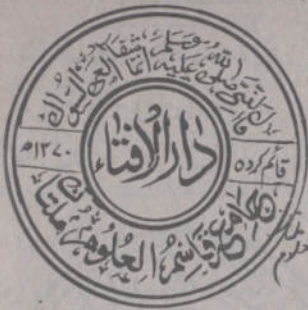 قال النبی صلی اللہ علیہ وسلم انما شفاء العی السوال
دار الافتاء
قائم کردہ
۱۳۷۰ھ
قاسم العلوم ملتان